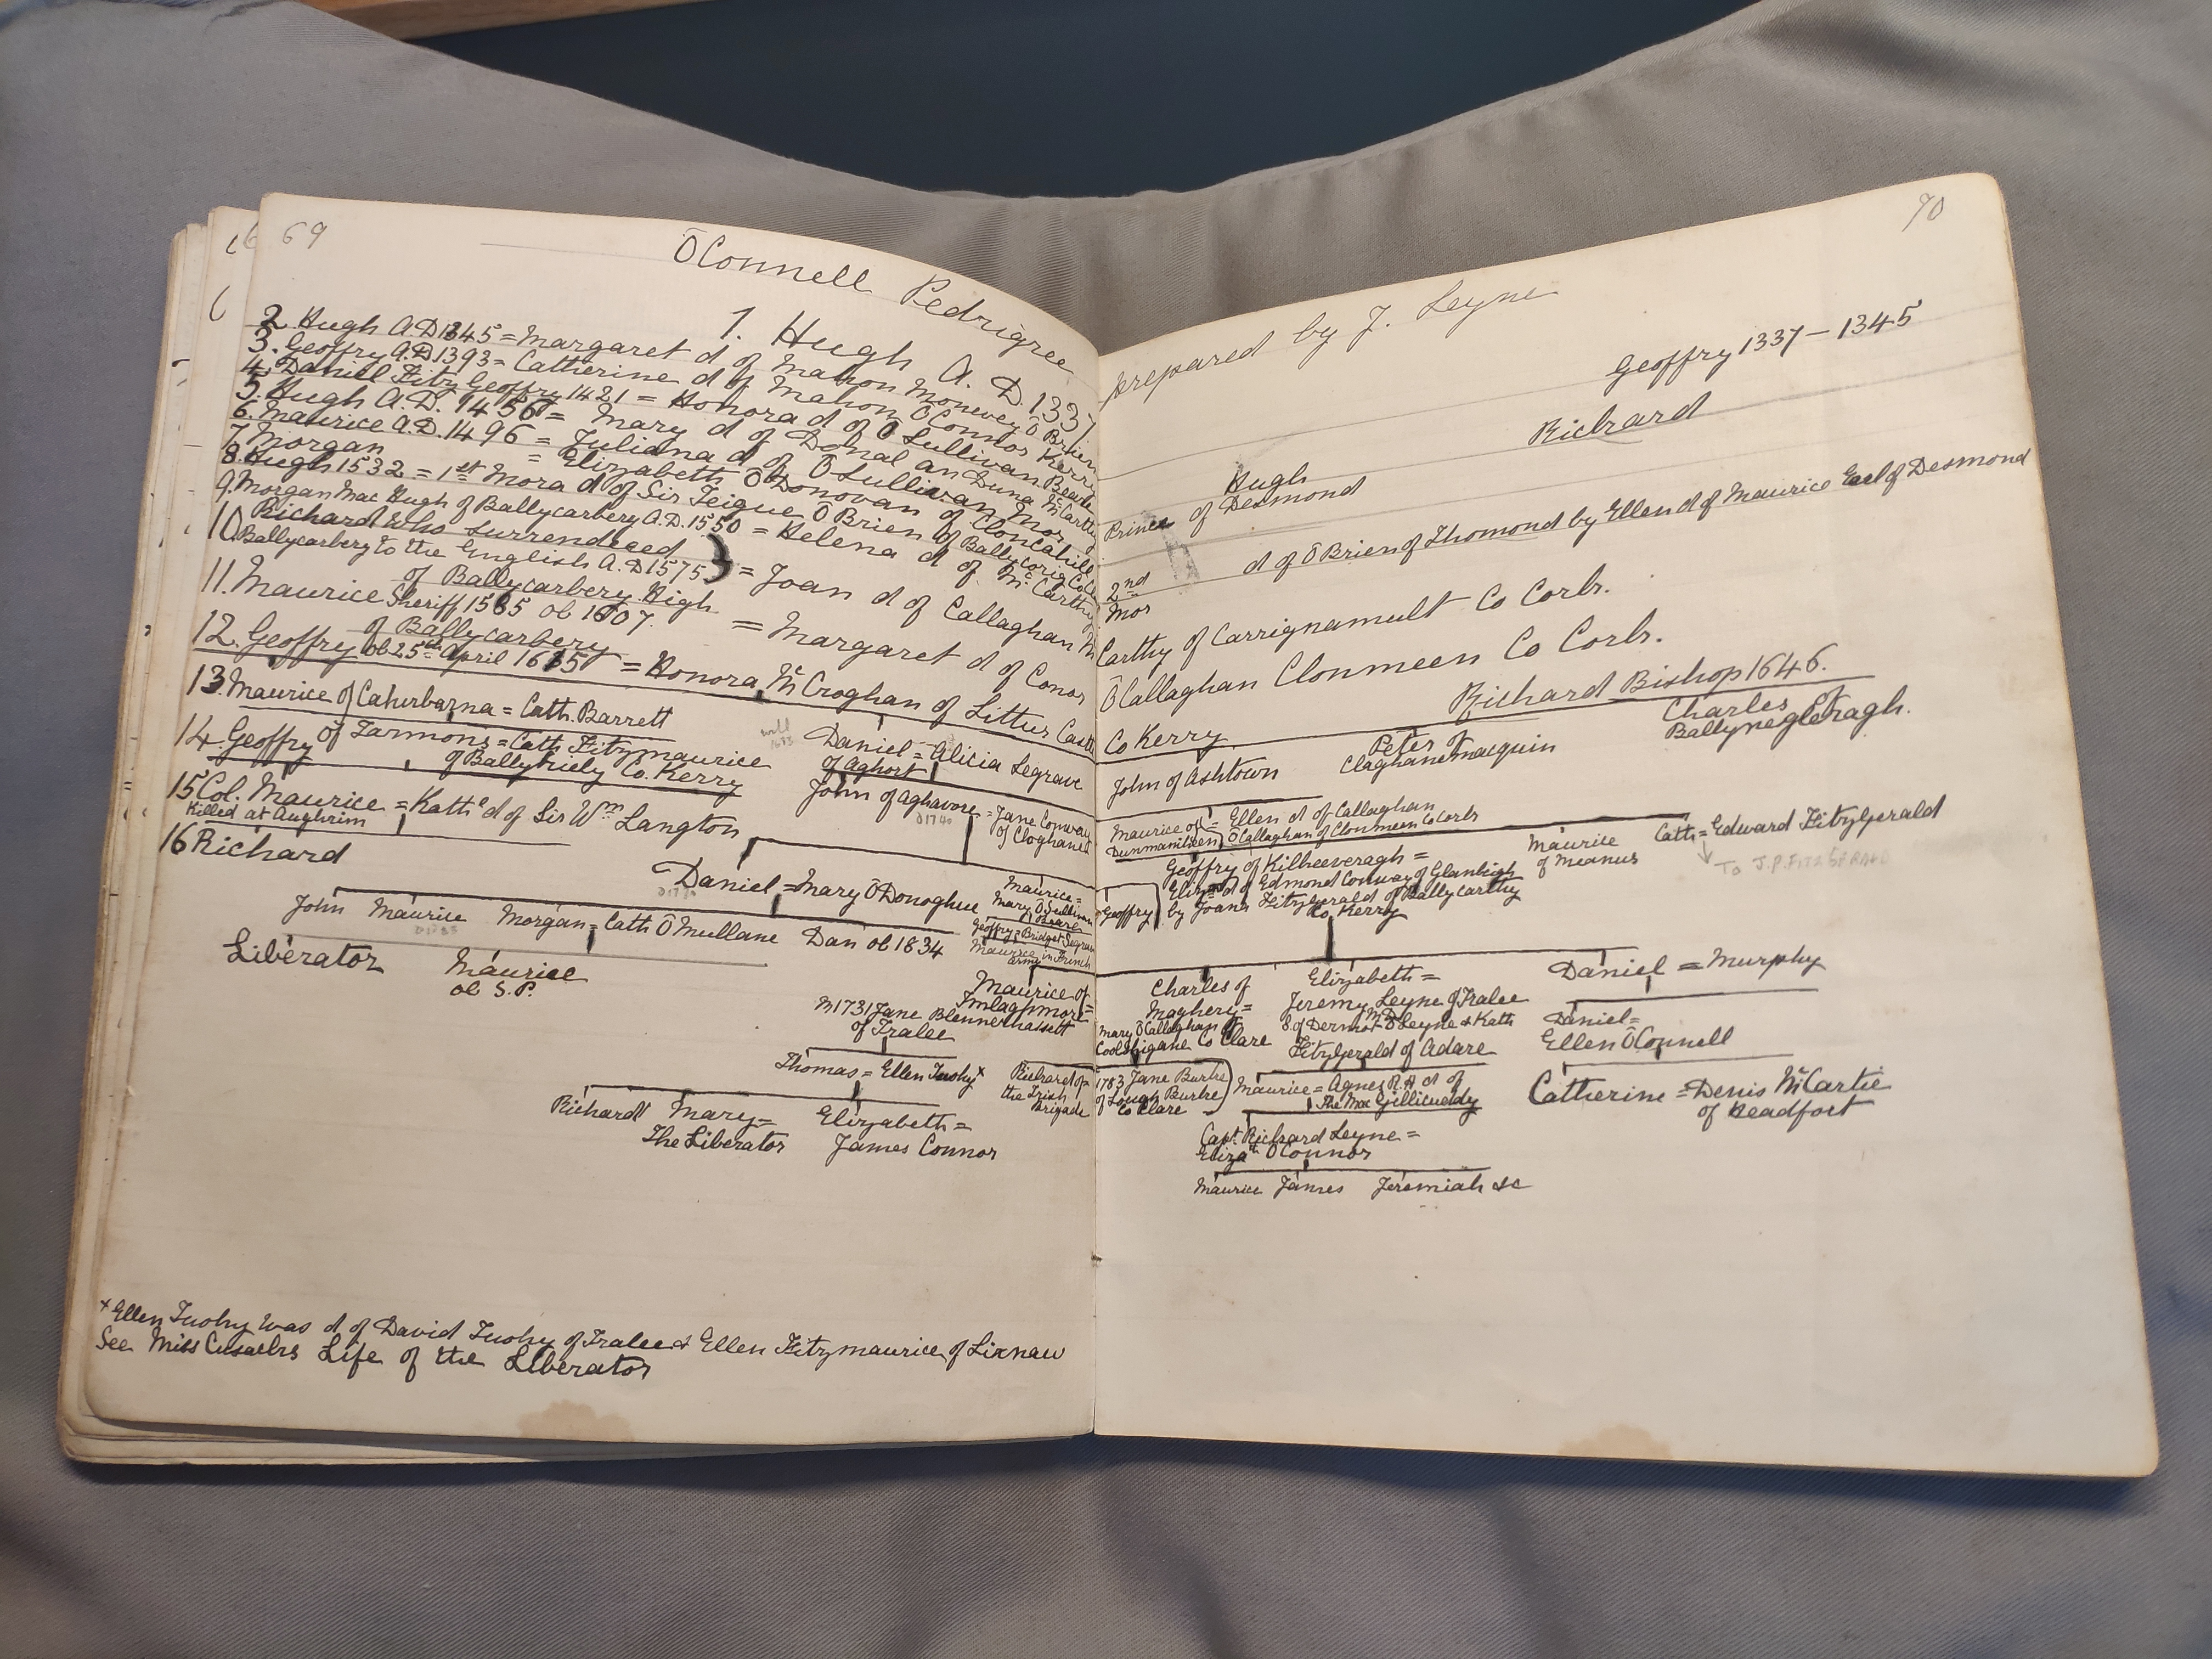 69
ŌConnell Pedrigree
1. Hugh A.D. 1337
2. Hugh A.D 1345 = Margaret d of Mahon Monevey O Brien
3. Geoffry A.D. 1393 = Catherine d of Mahon O Connor Kerry
4. Daniel Fitz Geoffry 1421 = Honora d of O Sullivan Beare
5. Hugh A.D. 1456 = Mary d of Donal an Duna McCarthy
6. Maurice A.D. 1496 = Juliana d of O Sullivan Mor
7. Morgan = Elizabeth O Donovan of Cloncahill
8. Hugh 1532 = 1st Mora d of Sir Teigue O Brien of Ballycorig Co
9. Morgan Mac Hugh of Ballycarbery A.D. 1550 = Helena d of McCarthy
10. Richard who surrendered
Ballycarbery to the English A.D 1575 = Joan d of Callaghan
of Ballycarbery High
11. Maurice Sheriff 1585 ob 1607. = Margaret d of Conor
of Ballycarbery
12. Geoffry ob 25th April 1635 = Honora McCroghan of Litter Castle
13. Maurice of Cahirbarna = Cath. Barrett
will
Daniel = Alicia Segrave
of Aghort
14. Geoffry of Tarmons = Cath Fitzmaurice
of Ballykiely Co. Kerry
John of Aghavore = Jane Conway
of Cloghane
D1740
15 Col. Maurice = Kathe d of Sir Wm Langton
Killed at Aughrim
16 Richard
Daniel = Mary ŌDonoghue
Maurice =
Mary O Sullivan
Beare
Geoffry = Bridget Segrave
Maurice in French
army
John Maurice Morgan = Cath ŌMullane Dan ob 1834
Liberator Maurice
ob S.P.
Maurice of
Imlaghmore =
m 1731 Jane Blennerhassett
of Tralee
Thomas = Ellen Tuohy x
Richard of =
the Irish
Brigade
Richard Mary = Elizabeth =
The Liberator James Connor
x Ellen Tuohy was d of David Tuohy of Tralee & Ellen Fitzmaurice of Lixnaw
See Miss Cusacks Life of the Liberator
70
prepared by J. Leyne
Geoffry 1337 – 1345
Richard
Hugh
Prince of Desmond
2nd d of ŌBrien of Thomond by Ellen d of Maurice Earl of Desmond
Mor
Carthy of Carrignamult Co Cork.
ŌCallaghan Clonmeen Co Cork.
Richard Bishop 1646.
Co Kerry
John of Ashtown
Peter of
Claghanemacquin
Charles of
Ballynegleragh.
Maurice of = Ellen d of Callaghan
Dunmaniheen ŌCallaghan of Clonmeen Co Cork
Geoffry of Kilkeeveragh =
Elizth d of Edmond Conway of Glanbigh
by Joana Fitzgerald of Ballycarthy
Co Kerry
Geoffry
Maurice
of Meanus
Cath = Edward Fitzgerald
To J.P. FITZGERALD
Charles of
Maghery =
Mary ŌCallaghan of
Coolshigane Co Clare
Elizabeth =
Jeremy Leyne of Tralee
M.D.
S. of Dermot ŌLeyne & Kath
Fitzgerald of Adare
Daniel = Murphy
Daniel =
Ellen ŌConnell
1783 Jane Burke
of Lough Burke
Co Clare
Maurice = Agnes R.A d of
The Mac Gillicuddy
Catherine = Denis McCartie
of Headfort
Capt. Richard Leyne =
Elizath ŌConnor
Maurice James Jeremiah &c